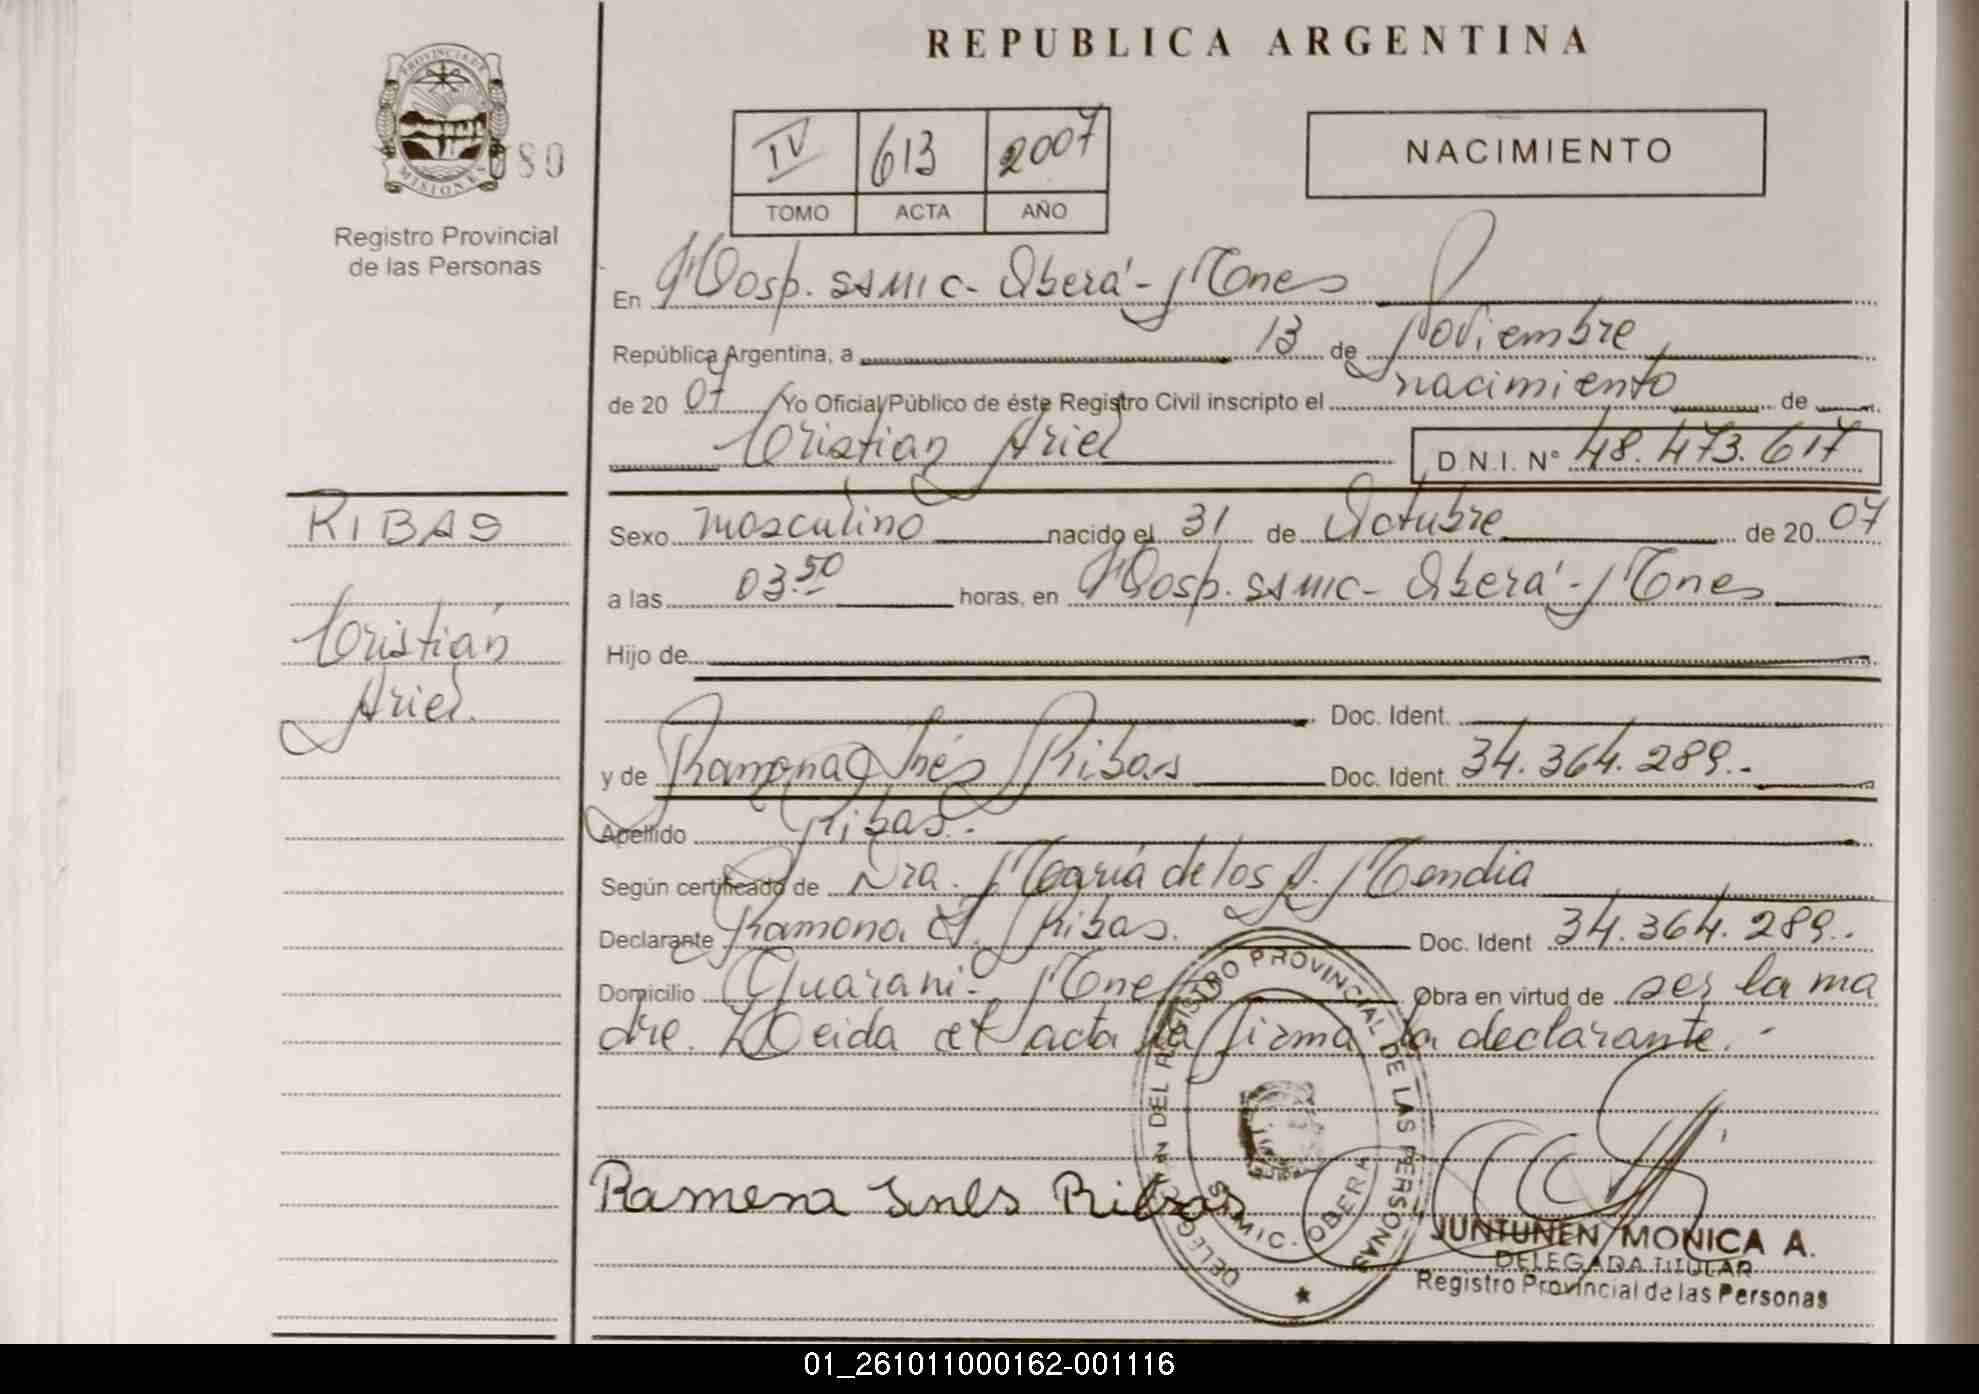 REPUBLICA ARGENTINA
PROVINCIA DE
MISIONES
080
Registro Provincial
de las Personas
IV 613 2007
TOMO ACTA AÑO
NACIMIENTO
En Hosp. SAMIC - Oberá - Mnes
República Argentina, a 13 de Noviembre
de 20 07 Yo Oficial Público de éste Registro Civil inscripto el nacimiento de
Cristian Ariel D.N.I. N° 48.473.617
RIBAS
Cristian
Ariel.
Sexo masculino nacido el 31 de Octubre de 20 07
a las 03.50 horas, en Hosp. SAMIC - Oberá - Mnes
Hijo de
Doc. Ident.
y de Ramona Inés Ribas Doc. Ident. 34.364.289.-
Apellido Ribas.-
Según certificado de Dra. María de los A. Mendia
Declarante Ramona I. Ribas. Doc. Ident 34.364.289.-
Domicilio Guaraní - Mnes Obra en virtud de ser la ma
dre. Leida el acta la firma la declarante.-
Ramona Ines Ribas
DELEGACION DEL REGISTRO PROVINCIAL DE LAS PERSONAS
SAMIC - OBERA
JUNTUNEN MONICA A.
DELEGADA TITULAR
Registro Provincial de las Personas
01_261011000162-001116